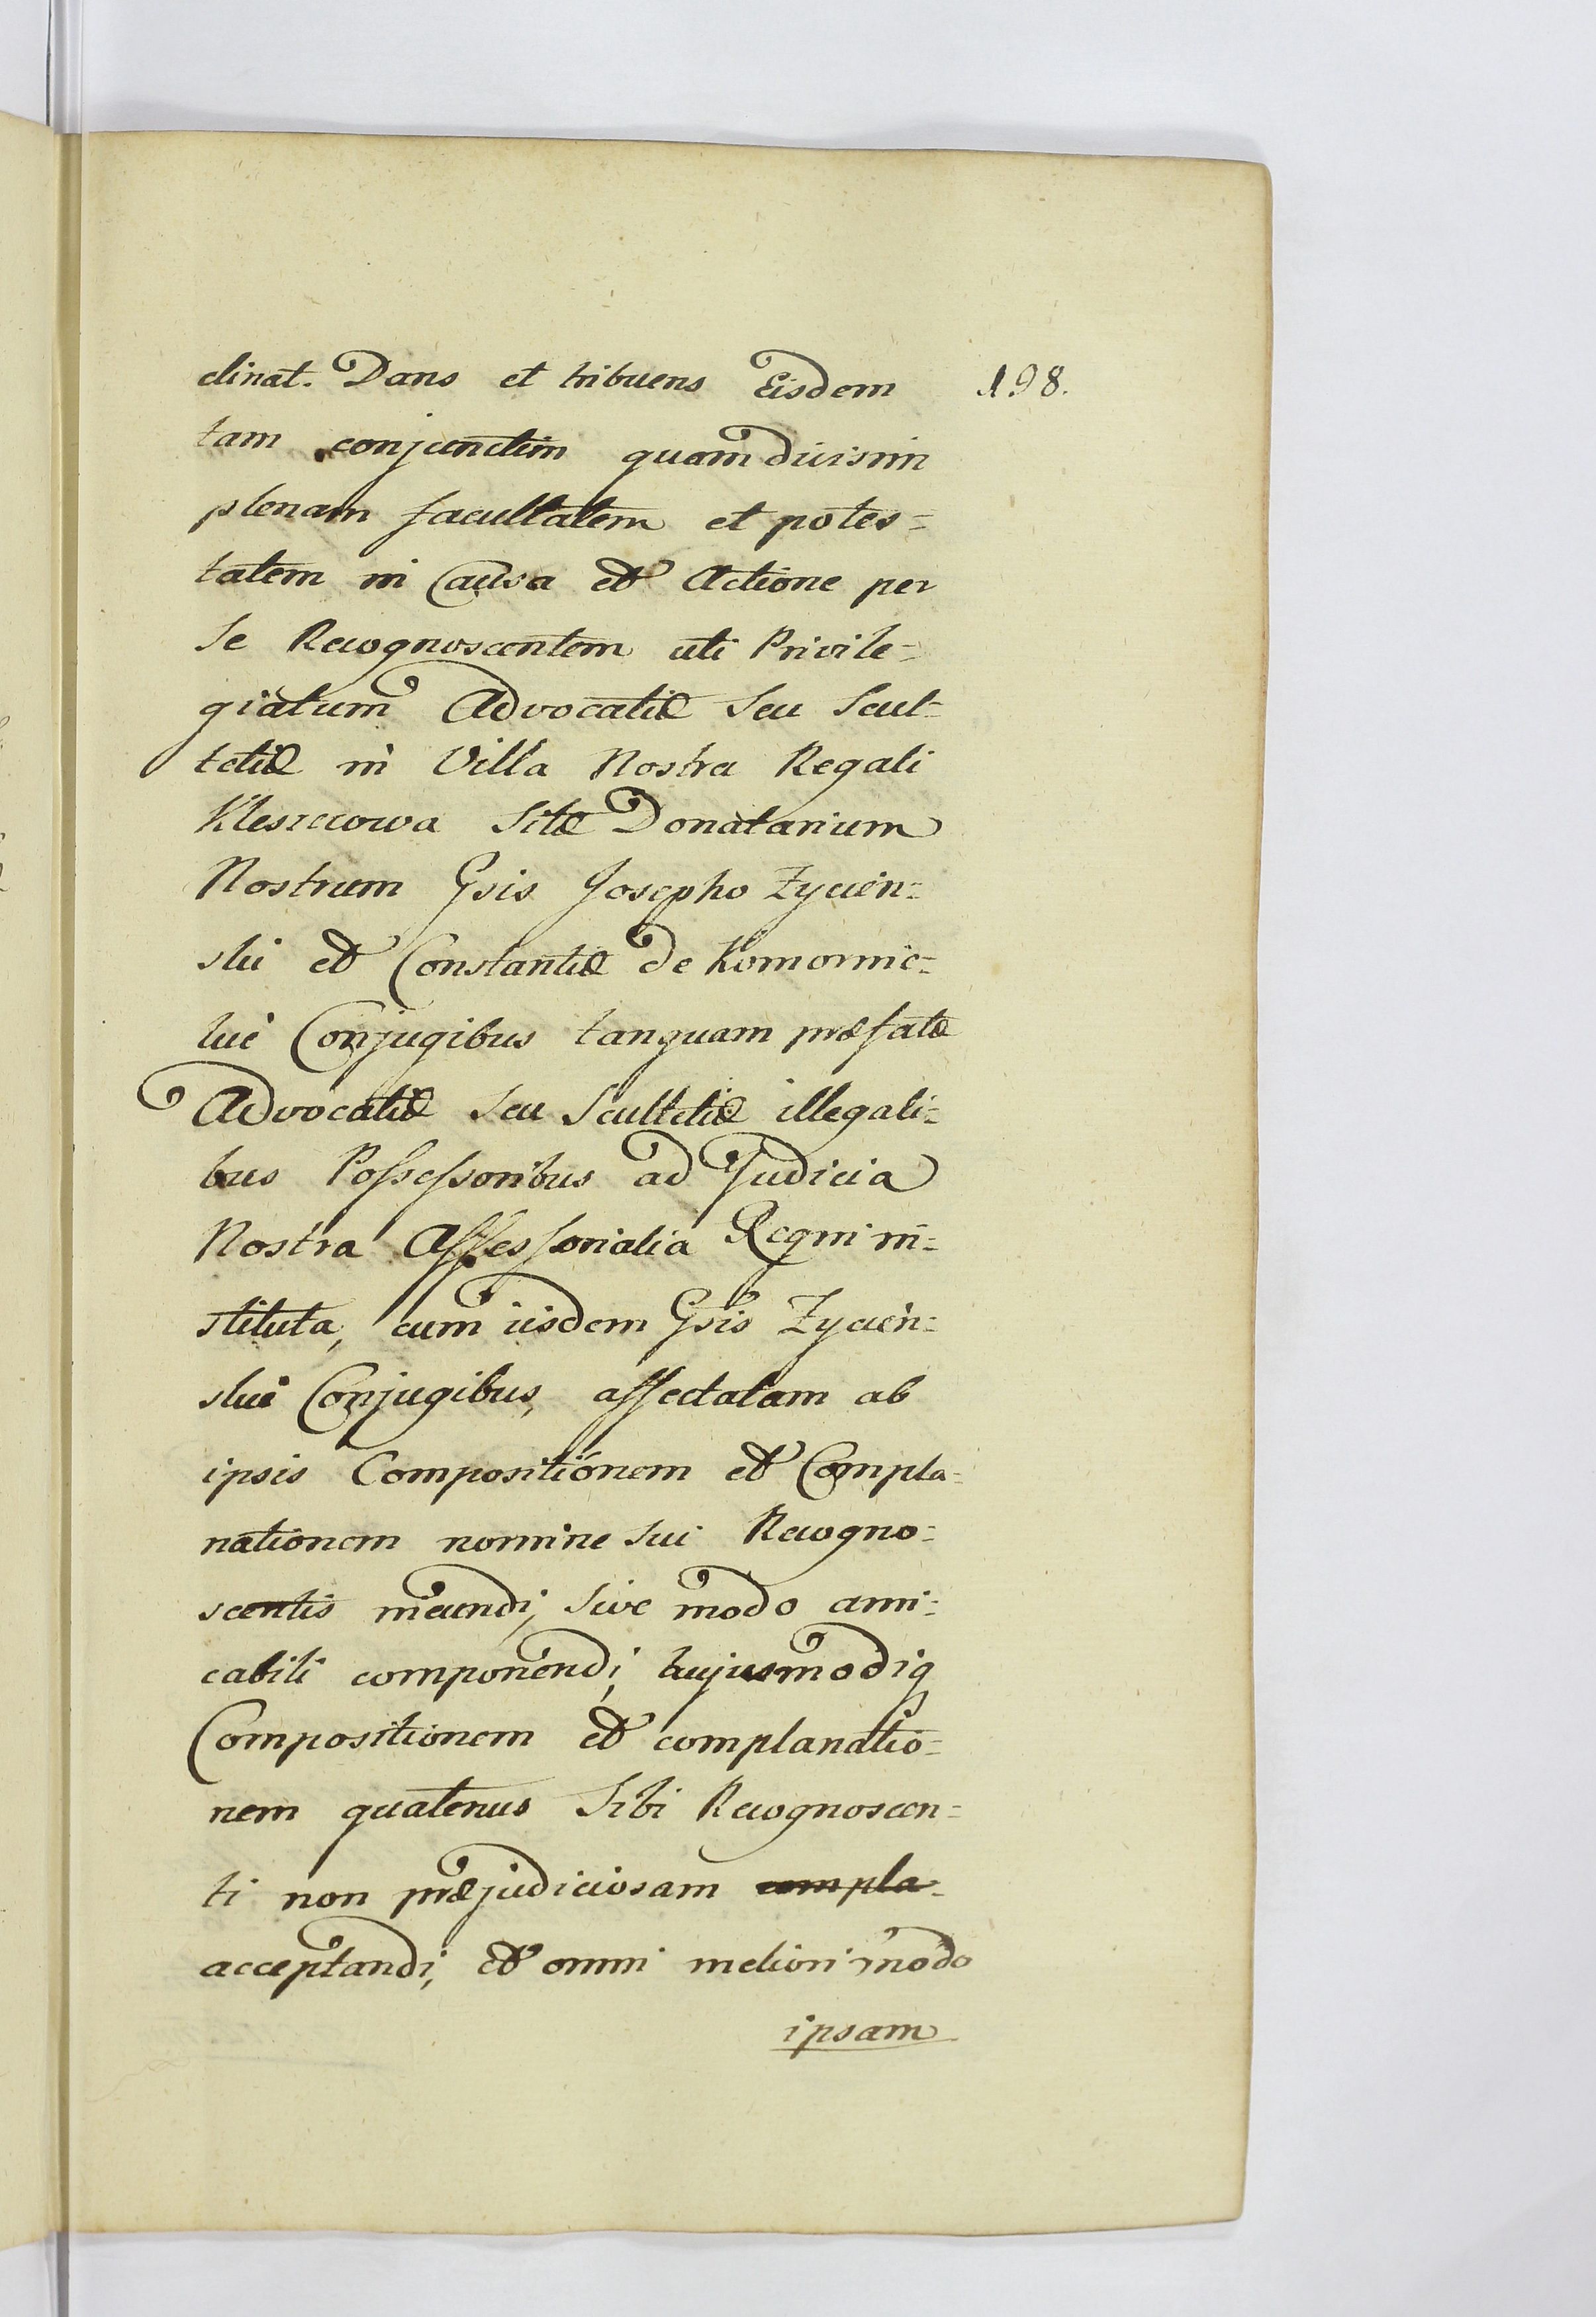 clinat. Dans et tribuens Eisdem 198.
tam conjunctim quam divisim
plenam facultatem et potes=
tatem in Causa et Actione per
se Recognoscentem uti Privile=
giatum Advocatiæ seu Scul=
tetiæ in Villa Nostra Regali
Kleszczowa sitæ Donatarium
Nostrum Gsis Josepho Zycień=
skii et Constantiæ de Komornic=
kie Conjugibus tanquam præfatæ
Advocatiæ seu Scultetiæ illegali=
bus Possessoribus ad Judicia
Nostra Assessorialia Regni in=
stituta, cum iisdem Gsis Zycień=
skie Conjugibus, affectatam ab
ipsis Compositionem et Compla=
nationem nomine sui Recogno=
scentis ineundi, sive modo ami=
cabili componendi, hujusmodiq
Compositionem et complanatio=
nem quatenus Sibi Recognoscen=
ti non præjudiciosam compla=
acceptandi, et omni meliori modo
ipsam